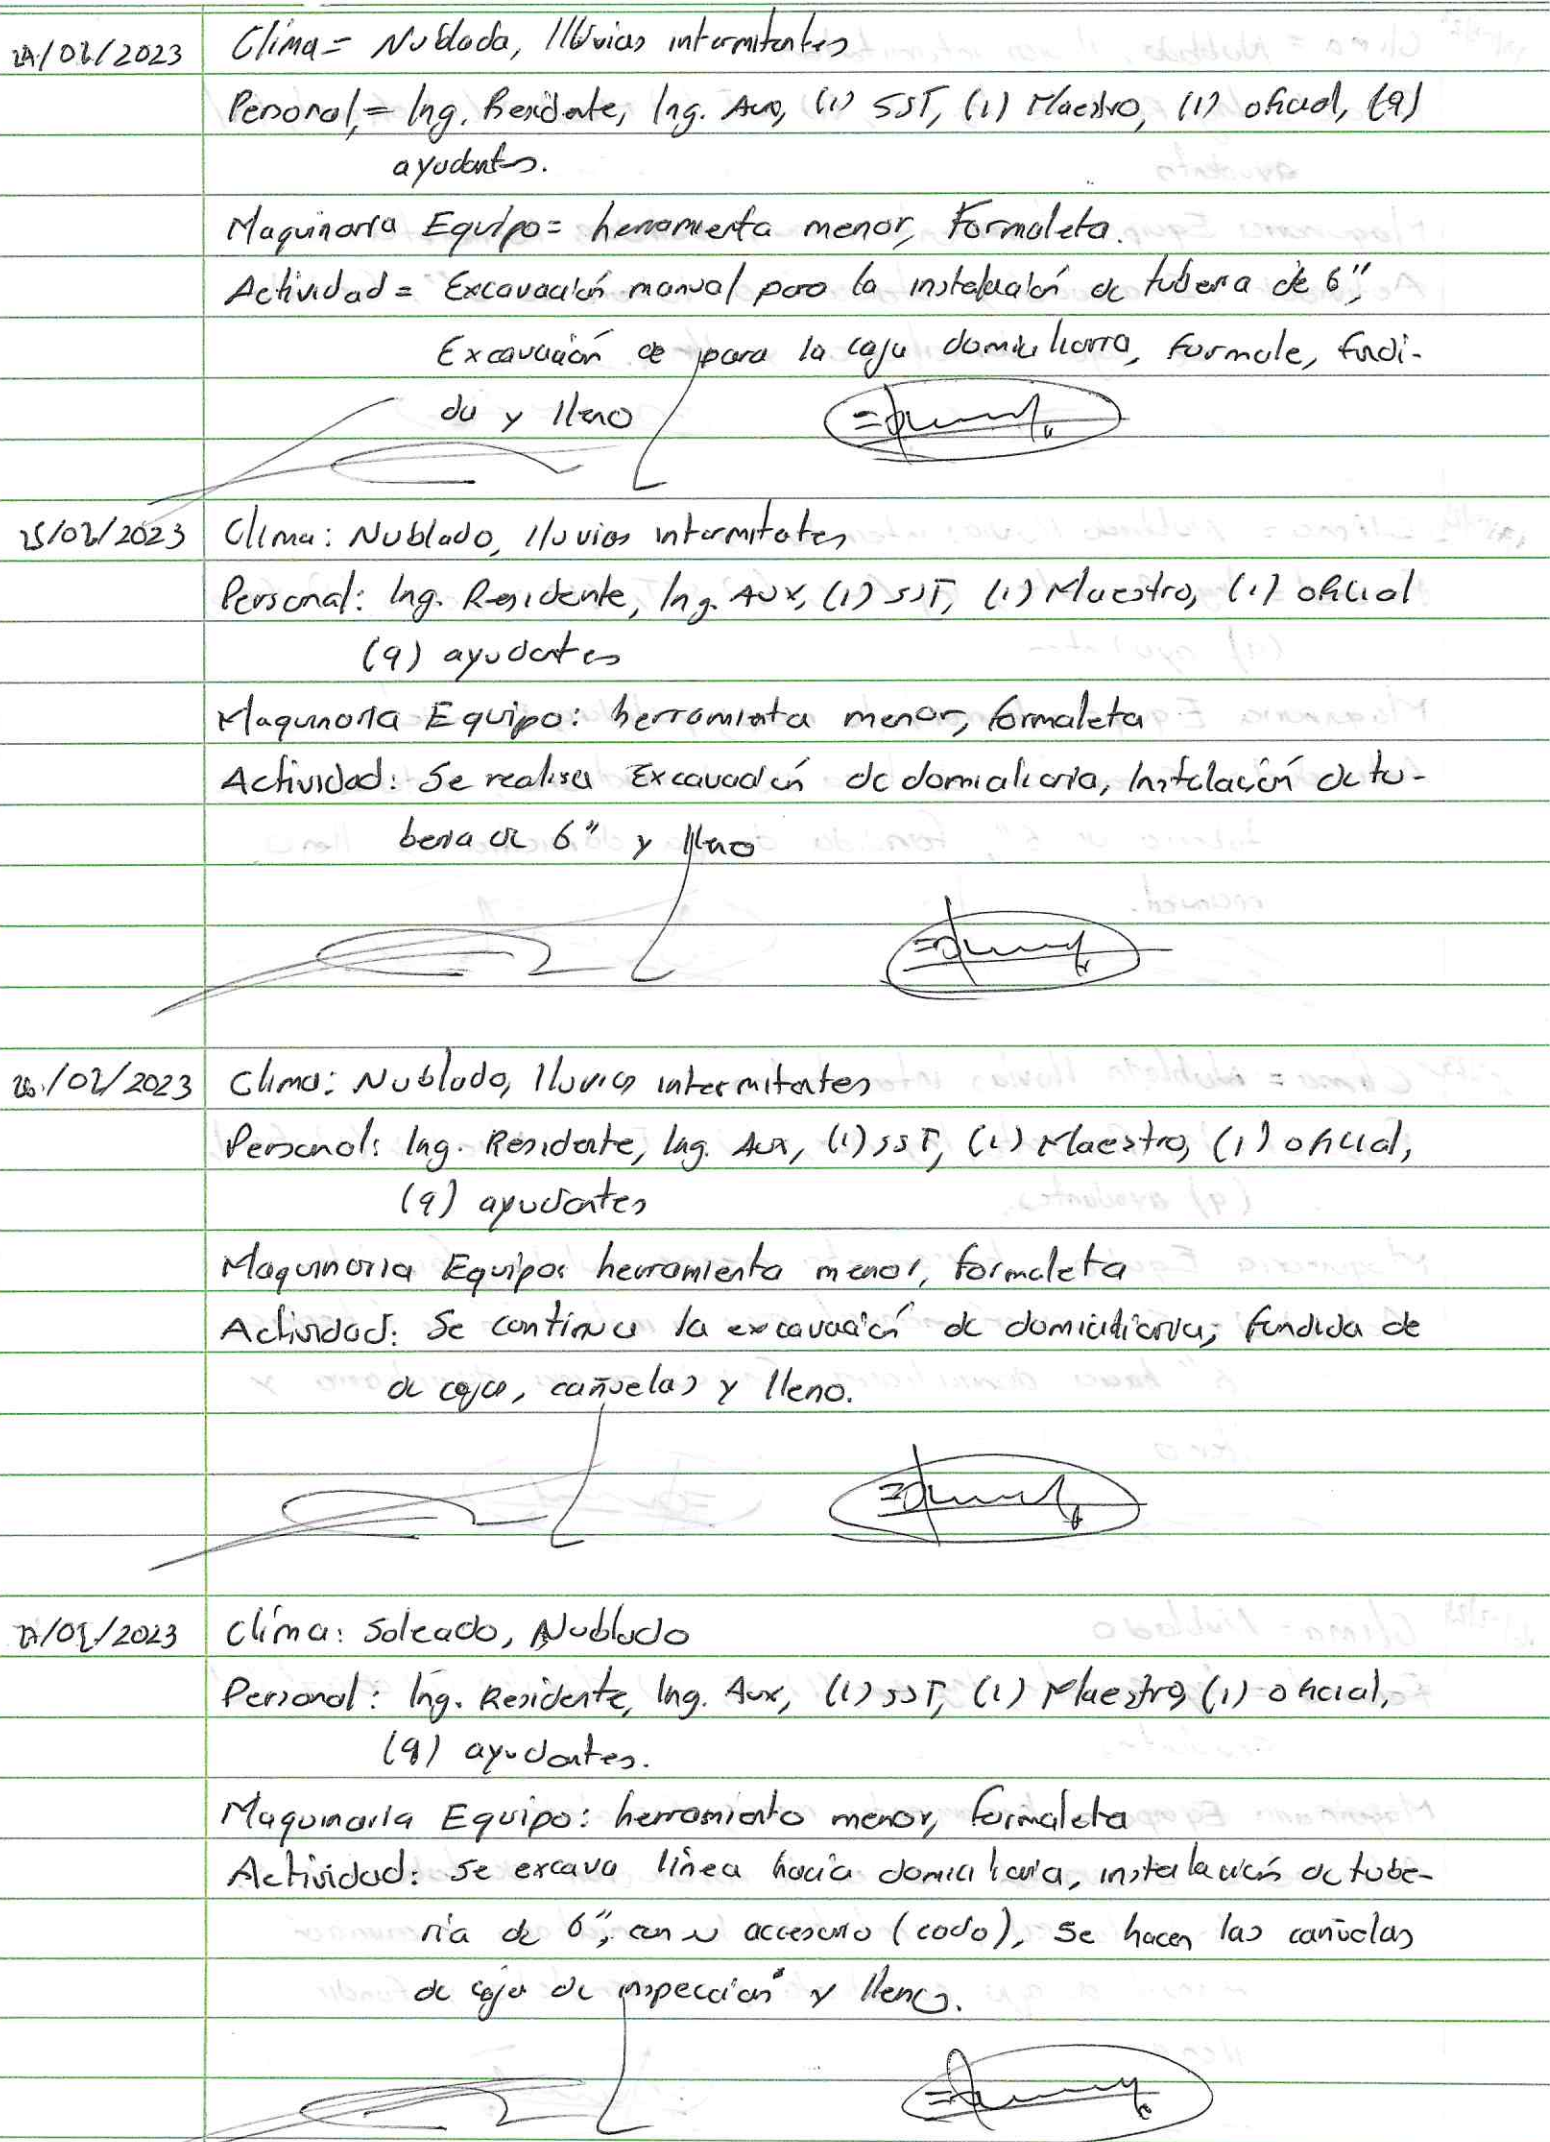 24/02/2023 Clima = Nublada, lluvias intermitentes
Personal, = Ing. Residente, Ing. Aux, (1) SST, (1) Maestro, (1) oficial, (9)
ayudantes.
Maquinaria Equipo = herramienta menor, Formaleta.
Actividad = Excavación manual para la instalación de tuberia de 6",
Excavación de para la caja domiciliaria, formale, fundi-
da y lleno
25/02/2023 Clima: Nublado, lluvias intermitates
Personal: Ing. Residente, Ing. Aux, (1) SST, (1) Maestro, (1) oficial
(9) ayudantes
Maquinaria Equipo: herramienta menor, formaleta
Actividad: Se realisa Excavación de domiciliaria, Instalación de tu-
beria de 6" y lleno
26/02/2023 Clima: Nublado, lluvias intermitentes
Personal: Ing. Residente, Ing. Aux, (1) SST, (1) Maestro, (1) oficial,
(9) ayudantes
Maquinaria Equipo: herramienta menor, formaleta
Actividad: Se continua la excavación de domiciliaria, fundida de
de caja, cañuelas y lleno.
27/02/2023 Clima: Soleado, Nublado
Personal: Ing. Residente, Ing. Aux, (1) SST, (1) Maestro, (1) oficial,
(9) ayudantes.
Maquinaria Equipo: herramienta menor, formaleta
Actividad: Se excava línea hacia domiciliaria, instalación de tube-
ría de 6", con su accesorio (codo), se hacen las cañuelas
de caja de inspección y lleno.